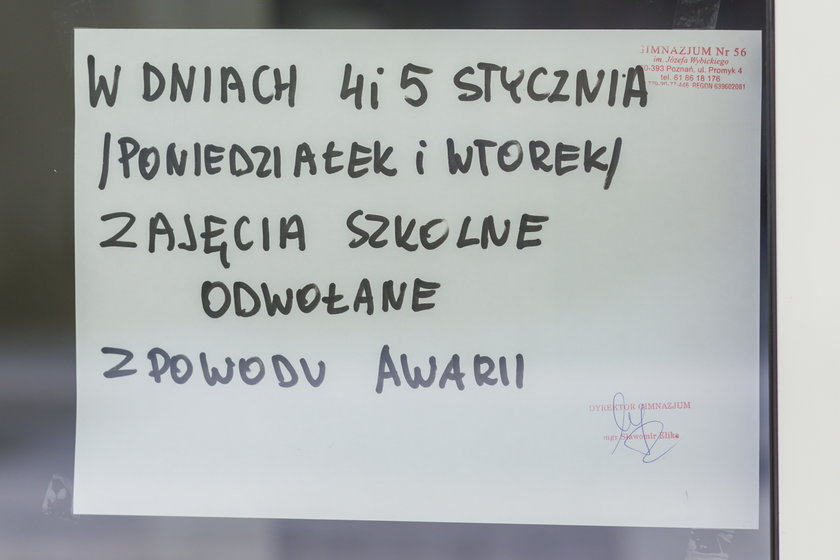 GIMNAZJUM Nr 56
im. Józefa Wybickiego
60-393 Poznań, ul. Promyk 4
tel. 61 86 18 176
REGON 639602081
W DNIACH 4 i 5 STYCZNIA
/PONIEDZIAŁEK i WTOREK/
ZAJĘCIA SZKOLNE
ODWOŁANE
Z POWODU AWARII
DYREKTOR GIMNAZJUM
mgr Sławomir